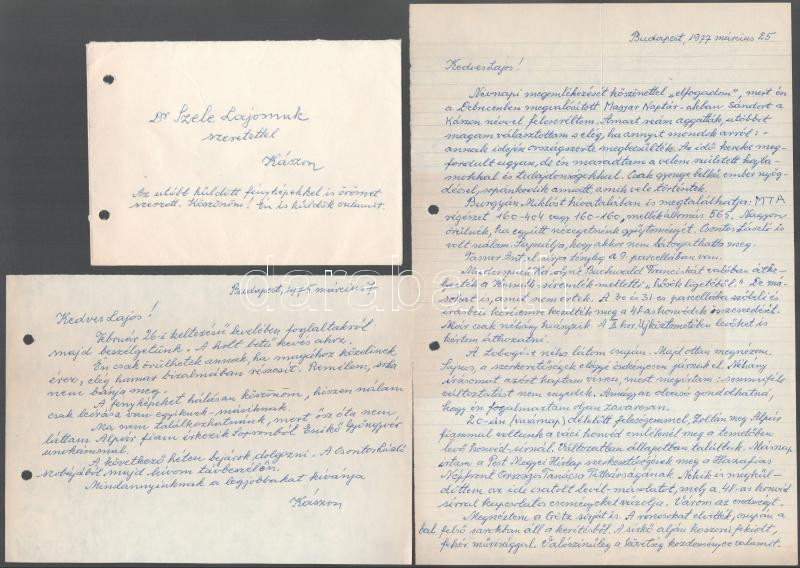 Dr Szele Lajosnak
szeretettel
Kászon
Az utóbb küldött fényképekkel is örömet
szerzett. Köszönöm! Én is küldök valamit.
Budapest, 1975 március 7
Kedves Lajos!
Február 26-i keltezésű levelében foglaltakról
majd beszélgetünk. A holt betű kevés ahoz.
Én csak örülhetek annak, ha magához közelinek
érez, elég hamar bizalmában részesít. Remélem, soha
nem bánja meg.
A fényképeket hálásan köszönöm, hiszen nálam
csak leírása van egyiknek-másiknak.
Ma nem találkozhatunk, mert ősz óta nem
láttam Alpár fiam érkezik Sopronból Enikő Gyöngyvér
unokámmal.
A következő héten bejárok dolgozni. A Csontos László
szobájából majd hívom távbeszélőn.
Mindannyiuknak a legjobbakat kívánja
Kászon
Budapest, 1977 március 25
Kedves Lajos!
Névnapi megemlékezését köszönettel „elfogadom", mert én
a Debrecenben megvalósított Magyar Naptár-akban Sándort a
Kászon névvel felcseréltem. Amazt reám aggatták, utóbbit
magam választottam s elég, ha annyit mondok arról: -
annak idején országszerte megbecsülték. Az idő kereke meg-
fordult ugyan, de én maradtam a velem született hajla-
mokkal és tulajdonságokkal. Csak gyenge belkű ember nyög-
décsel, sopánkodik amiatt, amik vele történtek.
Burgyán Miklóst hivatalában is megtalálhatja: MTA
régészet 160-404 vagy 160-160, mellékállomás 565. Nagyon
örülnék, ha együtt nézegetnénk gyűjteményét. Csontos László is
volt nálam. Sajnálja, hogy akkor nem látogathatta meg.
Tamer Antal sírja tényleg a 9. parcellában van.
Magdorszpilli Károlyné Buchwald Franciskát valóban áthe-
lyezték a Kossuth síremlék melletti „hősök ligetéből." De má-
sokat is, amit nem értek. A 30 és 31-es parcellába szóbeli és
írásbeli kérésemre kezdték meg a 48-as honvédek összeszedését.
Már csak néhány hiányzik. A X ker. Újköztemetőben levőket is
kértem áthozatni.
A Lobogó-t néha látom csupán. Majd ottan megnézem.
Sajnos, a szerkesztőségek eléggé önkényesen járnak el. Néhány
írásomat azért kaptam vissza, mert megírtam: semmiféle
változtatást nem engedek. Amúgy az olvasó gondolhatná,
hogy én fogalmaztam olyan zavarosan.
20-án (vasárnap) délelőtt feleségemmel, Zoltán meg Alpár
fiammal voltunk a váci honvéd emléknél meg a temetőben
levő honvéd-sírnál. Változatlan állapotban találtuk. Másnap
írtam a Pest Megyei Hírlap szerkesztőségének meg a Hazafias
Népfront Országos Tanácsa Titkárságának. Nekik is megkül-
döttem az ide csatolt levél-másolatot, mely a 48-as honvéd
sírral kapcsolatos eseményeket vázolja. Várom az eredményt.
Megnéztem a Götz sírját is. A rácsokat elvitték, csupán a
bal, felső sarokban áll a kerítésből. A sírkő alján koszorú feküdt,
fehér művirággal. Valószínűleg a követség kezdeményez valamit.
darabanth.com